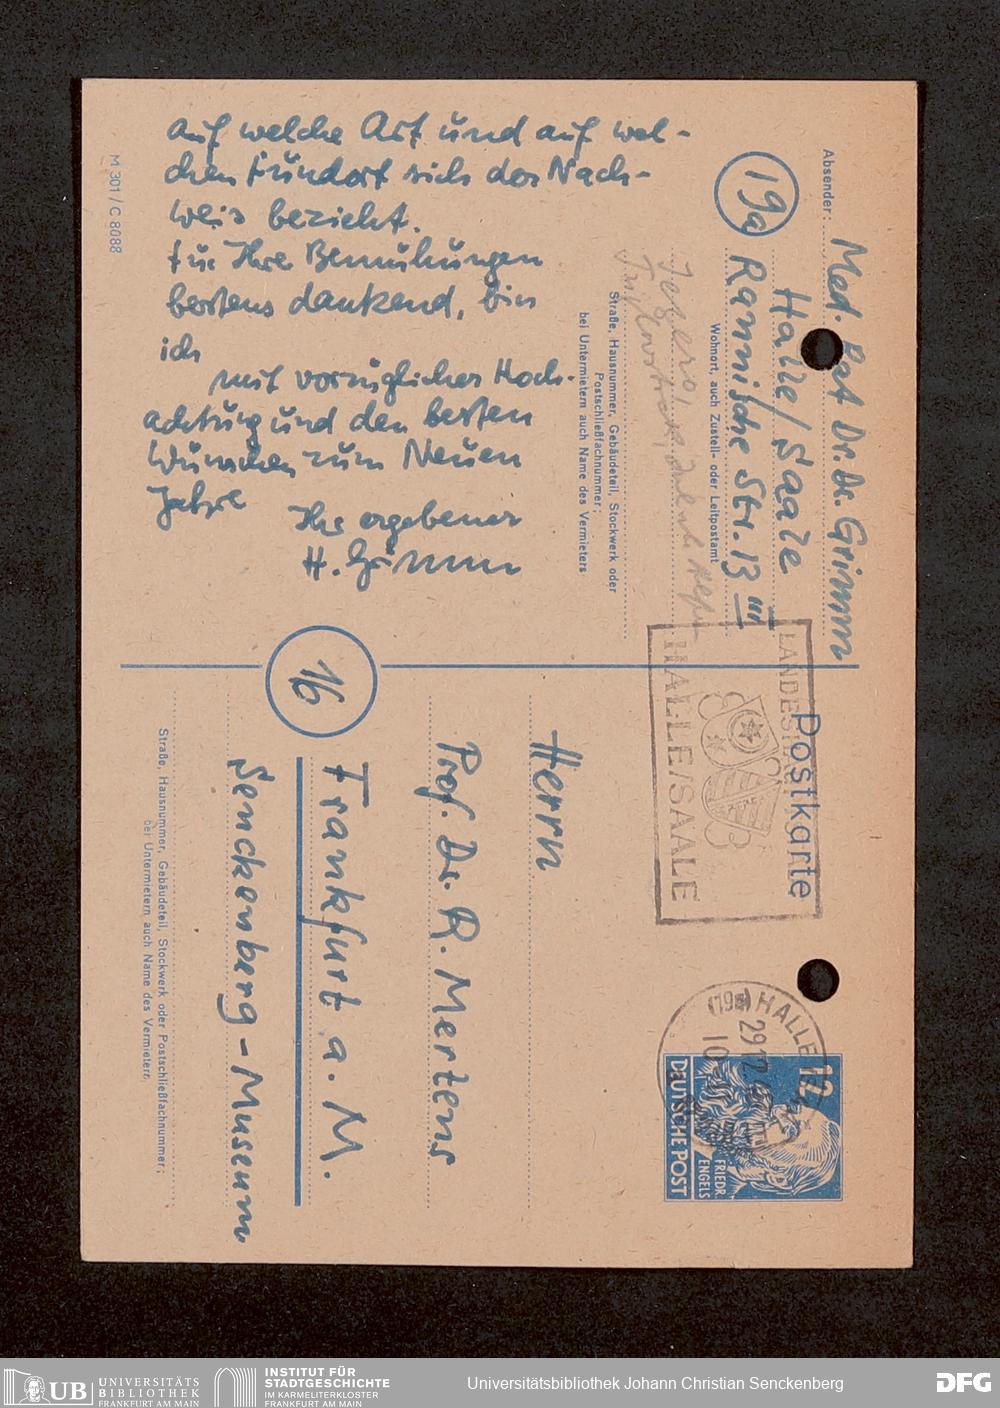 auf welche Art und auf wel-
chen Fundort sich der Nach-
weis bezieht.
Für Ihre Bemühungen
bestens dankend, bin
ich
mit vorzüglicher Hoch-
achtung und den besten
Wünschen zum Neuen
Jahre
Ihr ergebener
H. Grimm
M 301 / C 8088
Absender:
Med. Rat Dr. Dr. Grimm
Halle/Saale
19a
Rannische Str. 13 III
Wohnort, auch Zustell- oder Leitpostamt
Straße, Hausnummer, Gebäudeteil, Stockwerk oder
Postschließfachnummer;
bei Untermietern auch Name des Vermieters
Postkarte
LANDES
HALLE/SAALE
(19a) HALLE
29.12.
10
12
FRIEDR.
ENGELS
DEUTSCHE POST
Herrn
Prof. Dr. R. Mertens
16
Frankfurt a. M.
Senckenberg-Museum
Straße, Hausnummer, Gebäudeteil, Stockwerk oder Postschließfachnummer;
bei Untermietern auch Name des Vermieters
UB
UNIVERSITÄTS
BIBLIOTHEK
FRANKFURT AM MAIN
INSTITUT FÜR
STADTGESCHICHTE
IM KARMELITERKLOSTER
FRANKFURT AM MAIN
Universitätsbibliothek Johann Christian Senckenberg
DFG